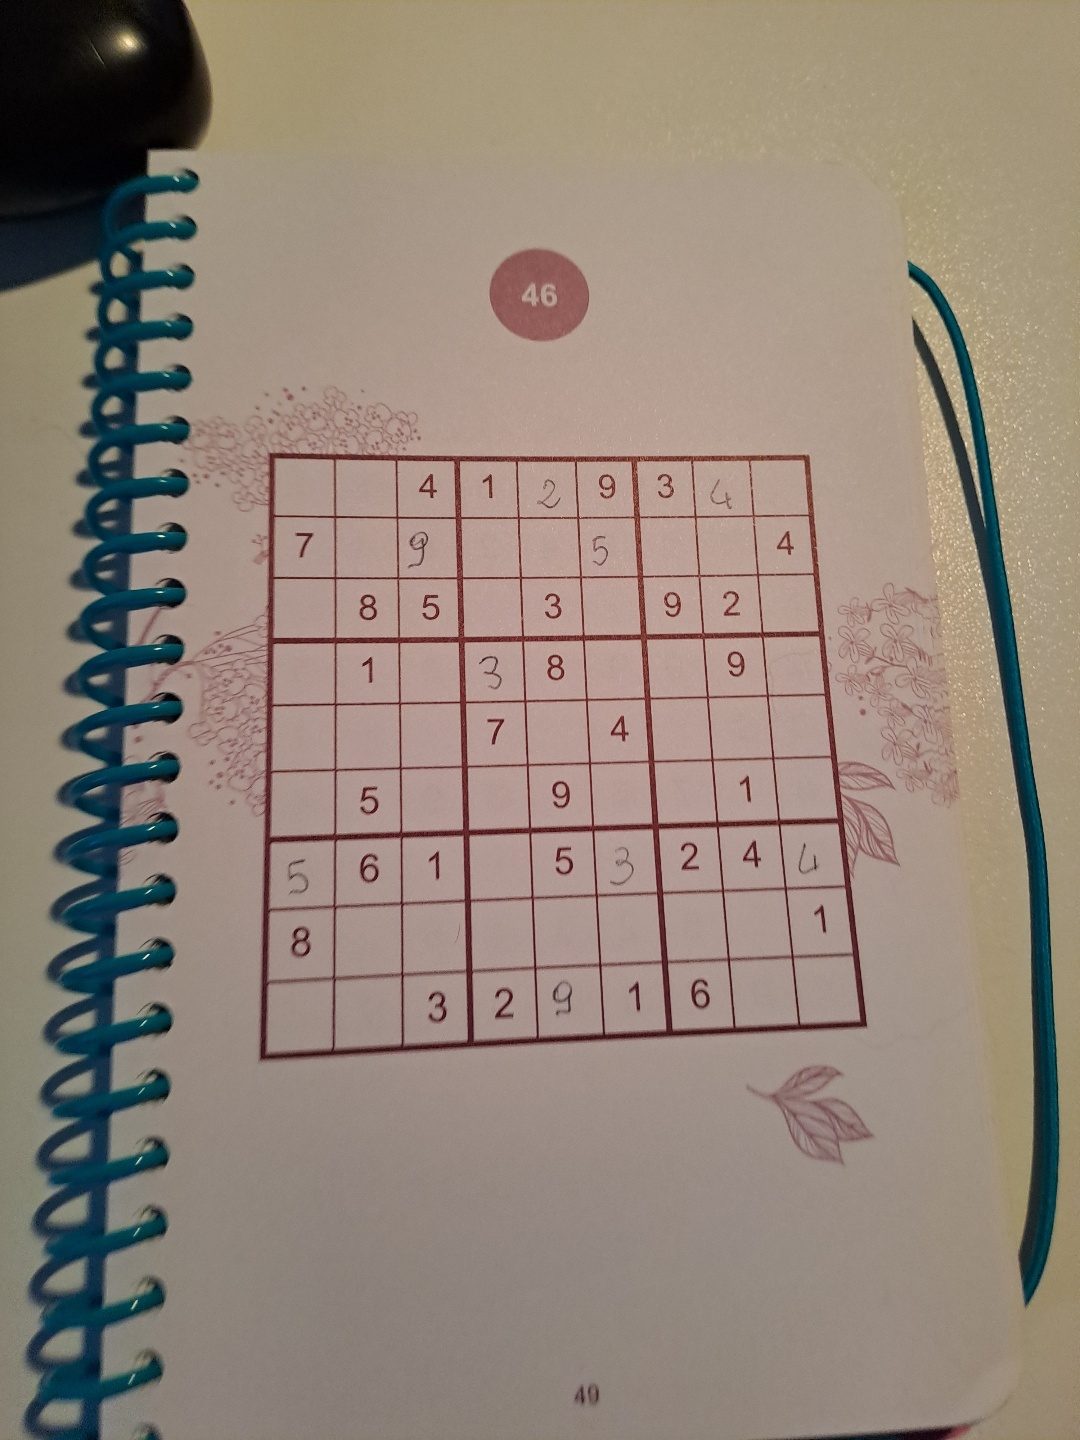 46
4 1 2 9 3 4
7 9 5 4
8 5 3 9 2
1 3 8 9
7 4
5 9 1
5 6 1 5 3 2 4 4
8 1
3 2 9 1 6
49